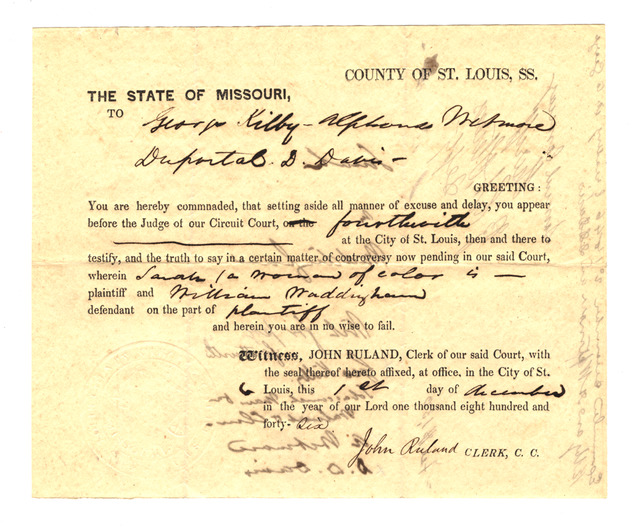 COUNTY OF ST. LOUIS, SS.
THE STATE OF MISSOURI,
TO George Kilby - Alphonso Wetmore
Duportal D. Davis -
GREETING:
You are hereby commnaded, that setting aside all manner of excuse and delay, you appear
before the Judge of our Circuit Court, on the forthwith
at the City of St. Louis, then and there to
testify, and the truth to say in a certain matter of controversy now pending in our said Court,
wherein Sarah (a woman of color is -
plaintiff and William Waddingham
defendant on the part of plaintiff
and herein you are in no wise to fail.
Witness, JOHN RULAND, Clerk of our said Court, with
the seal thereof hereto affixed, at office, in the City of St.
Louis, this 1st day of december
in the year of our Lord one thousand eight hundred and
forty-six
John Ruland CLERK, C. C.